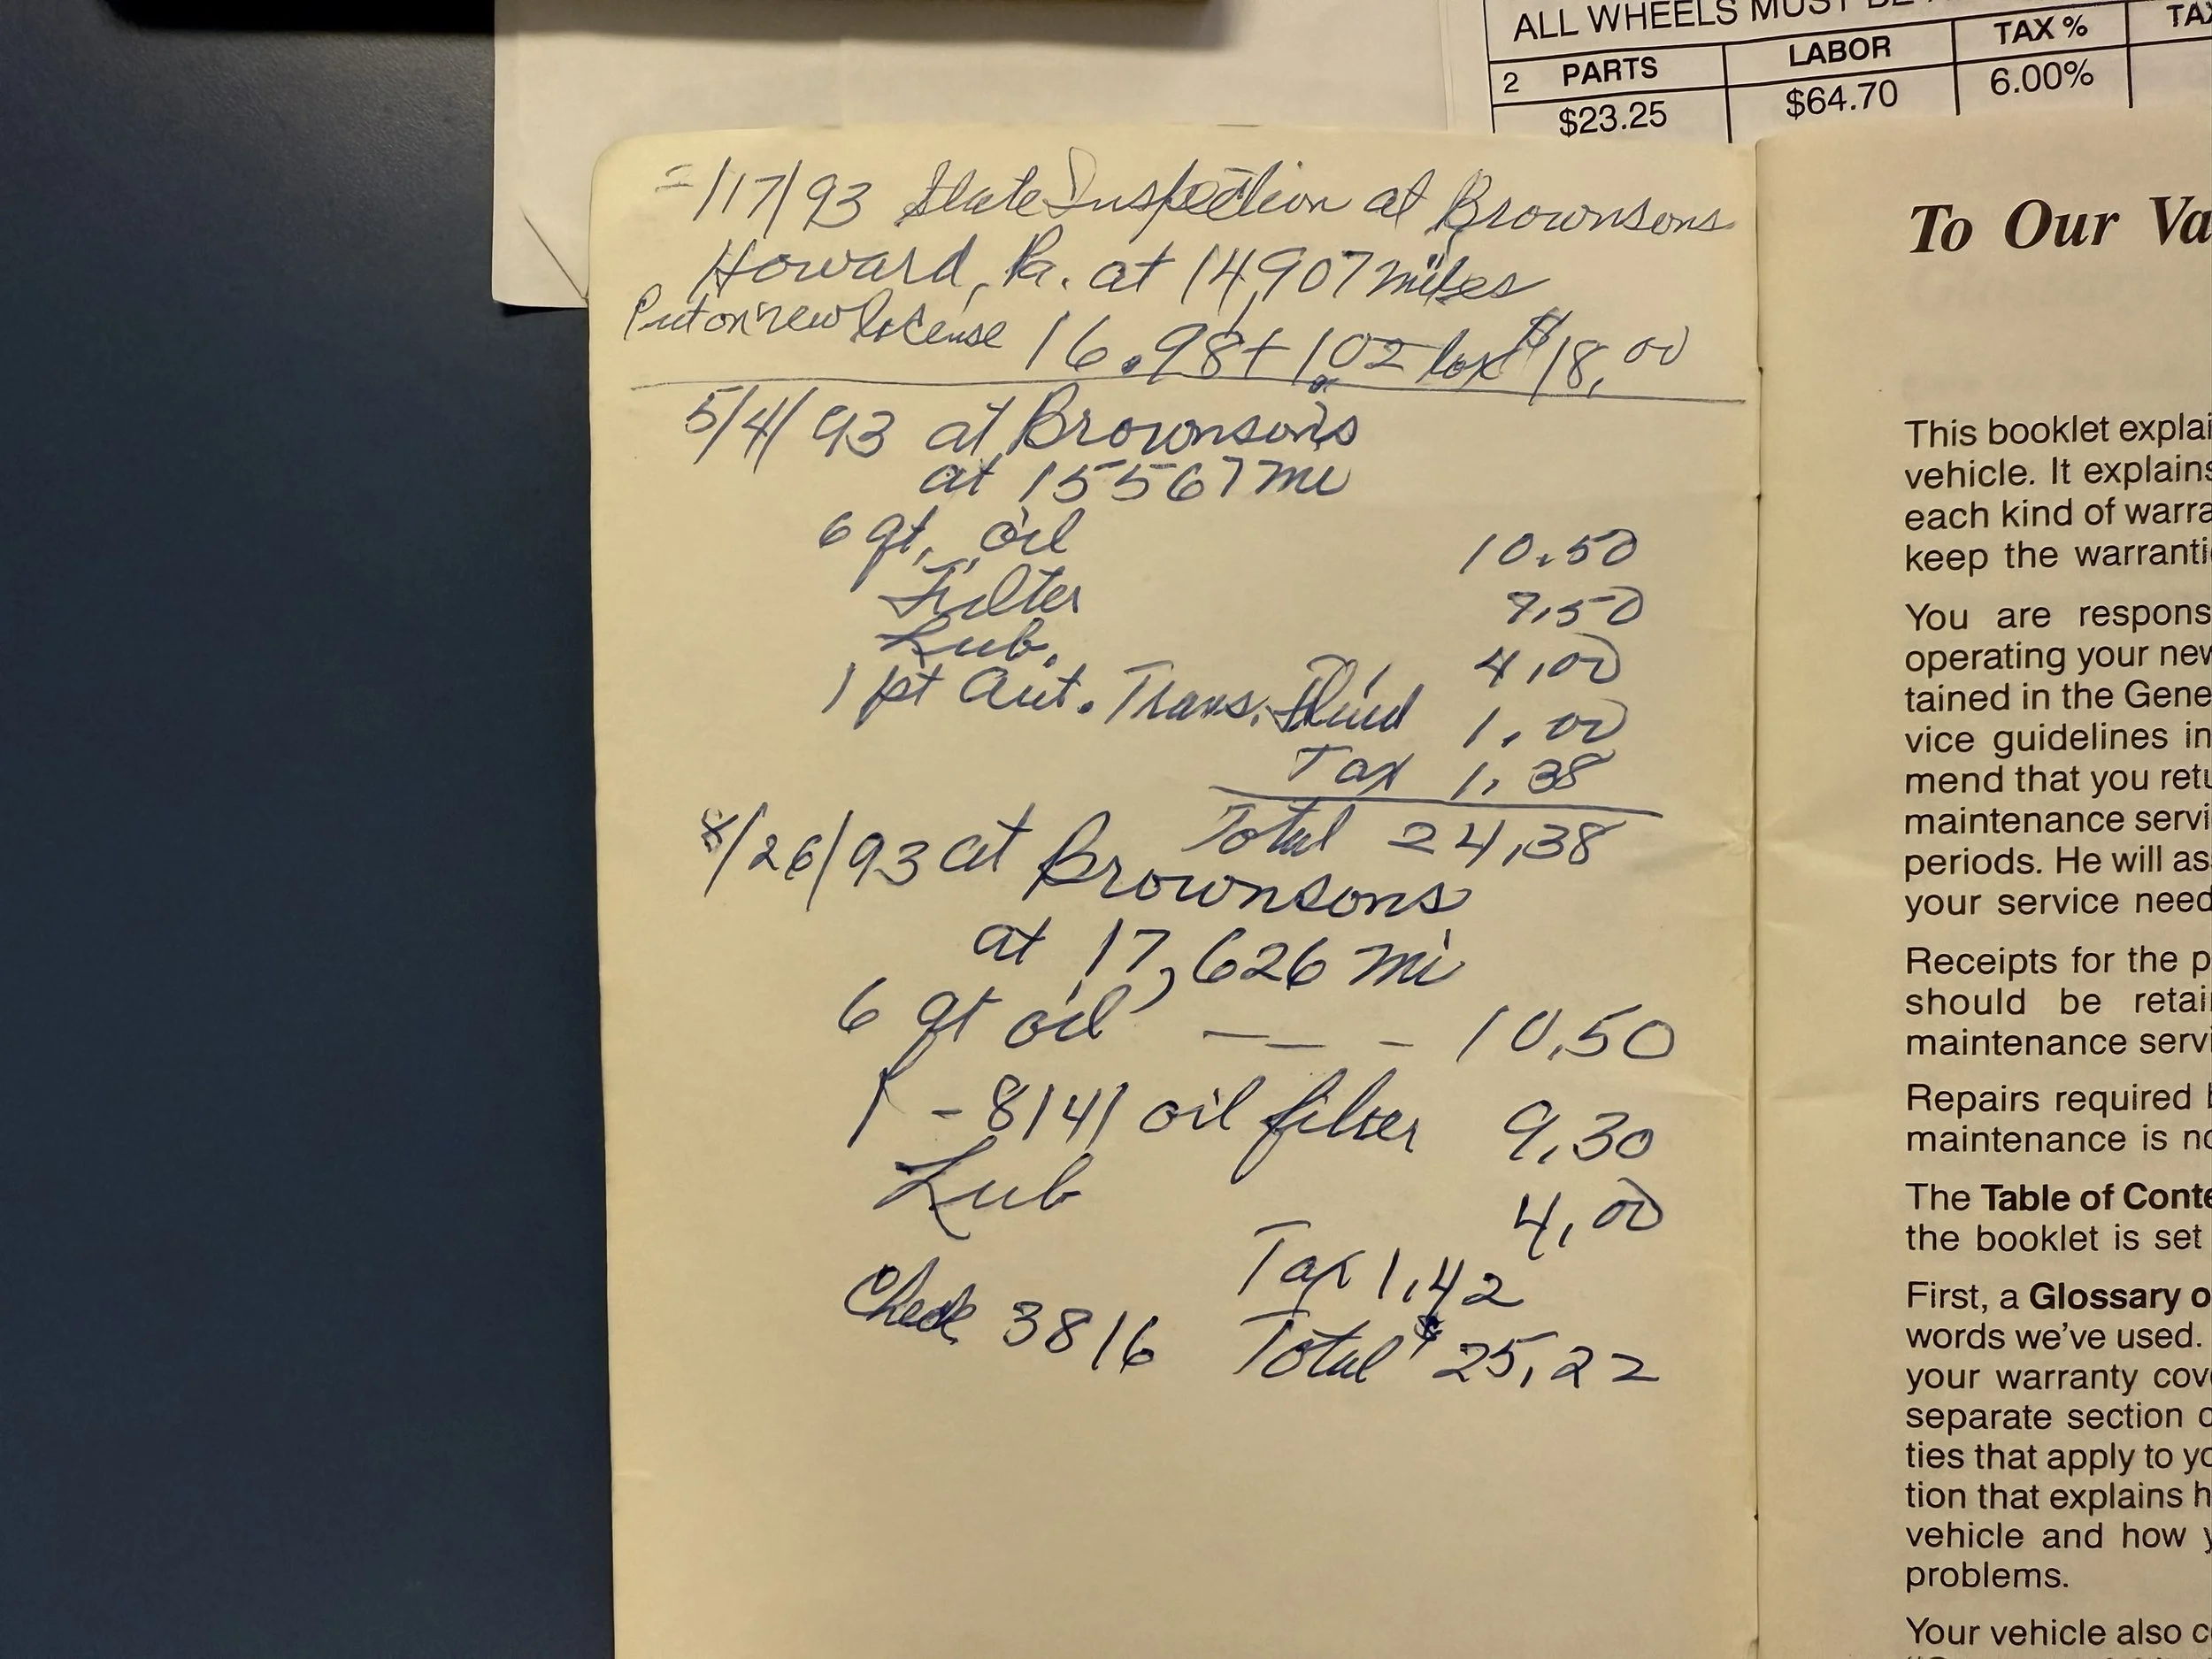 ALL WHEELS MUST BE
2 PARTS LABOR TAX %
$23.25 $64.70 6.00%
2/17/93 State Inspection at Brownsons
Howard, Pa. at 14,907 miles
Put on new license 16.98 + 1.02 tax $18.00
5/4/93 at Brownsons
at 15567 mi
6 qt. oil 10.50
Filter 7.50
Lub. 4.00
1 pt Aut. Trans. Fluid 1.00
Tax 1.38
Total 24.38
8/26/93 at Brownsons
at 17,626 mi
6 qt oil — — - 10.50
1 - 8141 oil filter 9.30
Lub 4.00
Tax 1.42
Check 3816 Total $25.22
To Our Va
This booklet explai
vehicle. It explains
each kind of warra
keep the warranti
You are respons
operating your new
tained in the Gene
vice guidelines in
mend that you retu
maintenance servi
periods. He will as
your service need
Receipts for the p
should be retai
maintenance servi
Repairs required
maintenance is no
The Table of Conte
the booklet is set
First, a Glossary o
words we've used.
your warranty cov
separate section o
ties that apply to yo
tion that explains h
vehicle and how y
problems.
Your vehicle also c